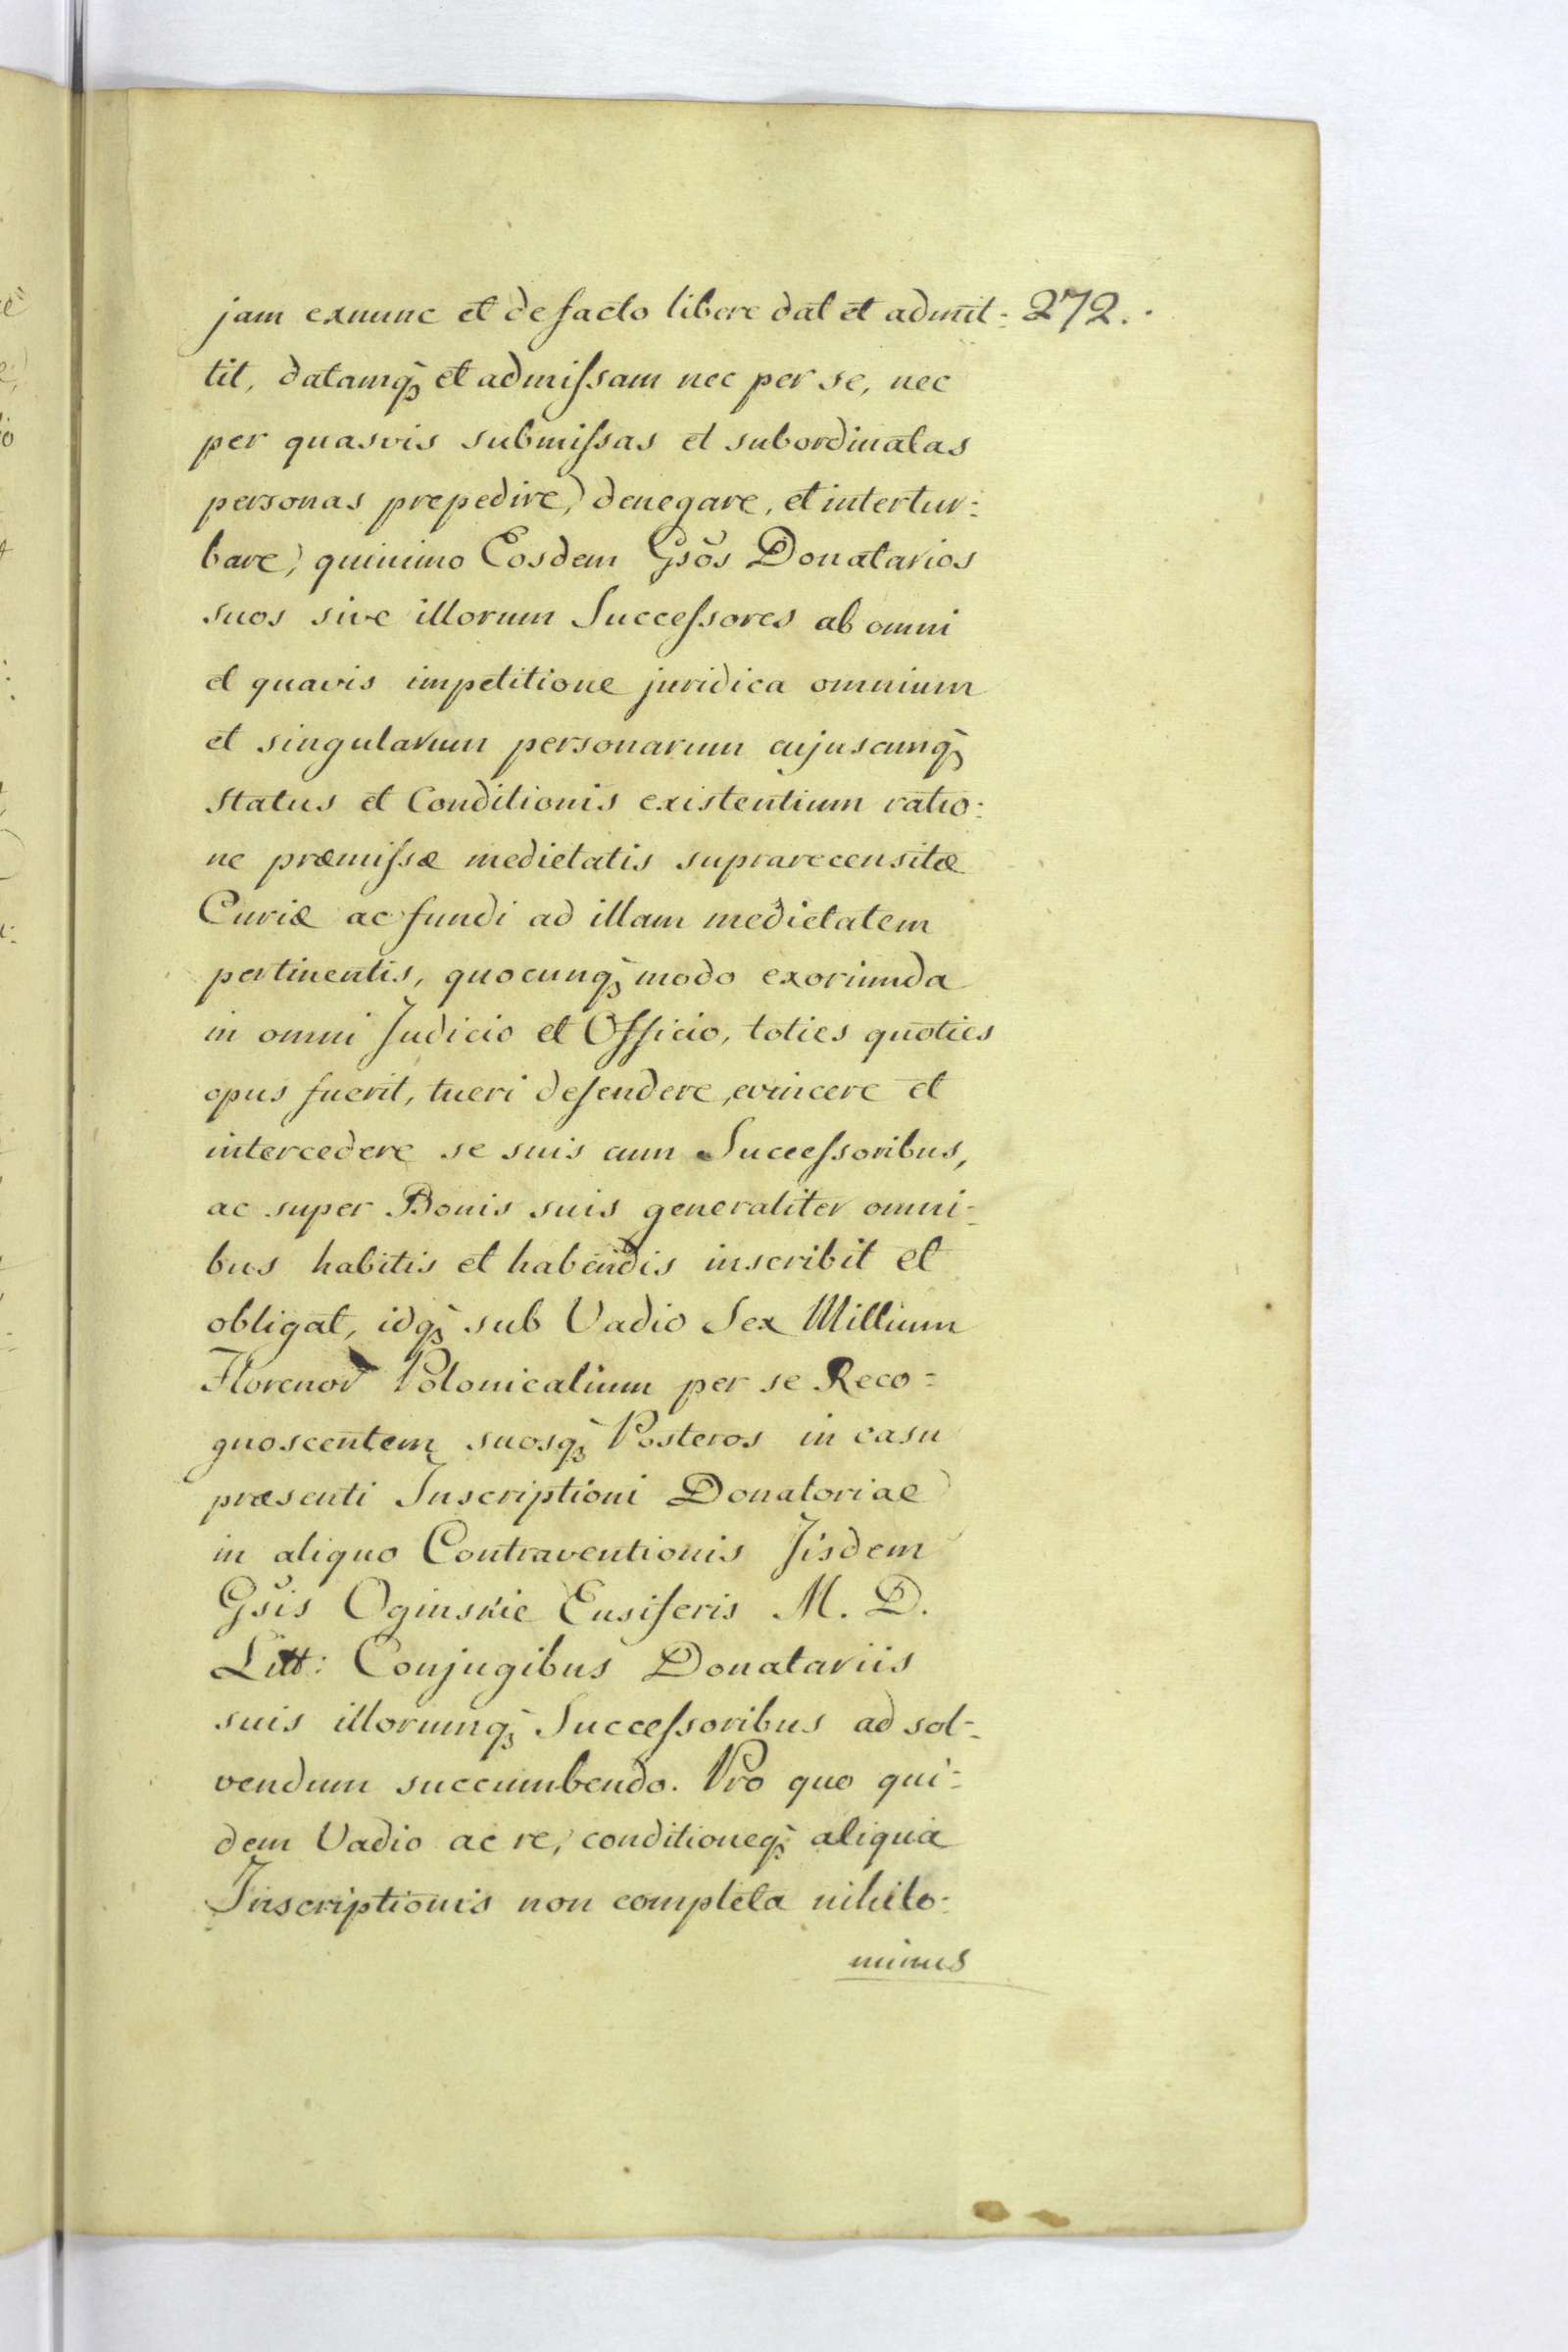 jam exnunc et defacto libere dat et admit- 272.
tit, datamq̃ et admiſsam nec per se, nec
per quasvis submiſsas et subordinatas
personas prepedire, denegare, et intertur-
bare, quinimo Eosdem Gsõs Donatarios
suos sive illorum Succeſsores ab omni
et quavis impetitione juridica omnium
et singularum personarum cujuscunq̃
status et Conditionis existentium ratio-
ne præmiſsæ medietatis suprarecensitæ
Curiæ ac fundi ad illam medietatem
pertinentis, quocunq̃ modo exoriunda
in omni Judicio et Officio, toties quoties
opus fuerit, tueri defendere, evincere et
intercedere se suis cum Succeſsoribus,
ac super Bonis suis generaliter omni-
bus habitis et habendis inscribit et
obligat, idq̃ sub Vadio Sex Millium
Florenor Polonicalium per se Reco-
gnoscentem suosq̃ Posteros in casu
præsenti Inscriptioni Donatoriae
in aliquo Contraventionis Jisdem
Gsĩs Oginskie Ensiferis M. D.
Litt: Conjugibus Donatariis
suis illorumq̃ Succeſsoribus ad sol-
vendum succumbendo. Pro quo qui-
dem Vadio ac re, conditioneq̃ aliqua
Inscriptionis non completa nihilo-
minus